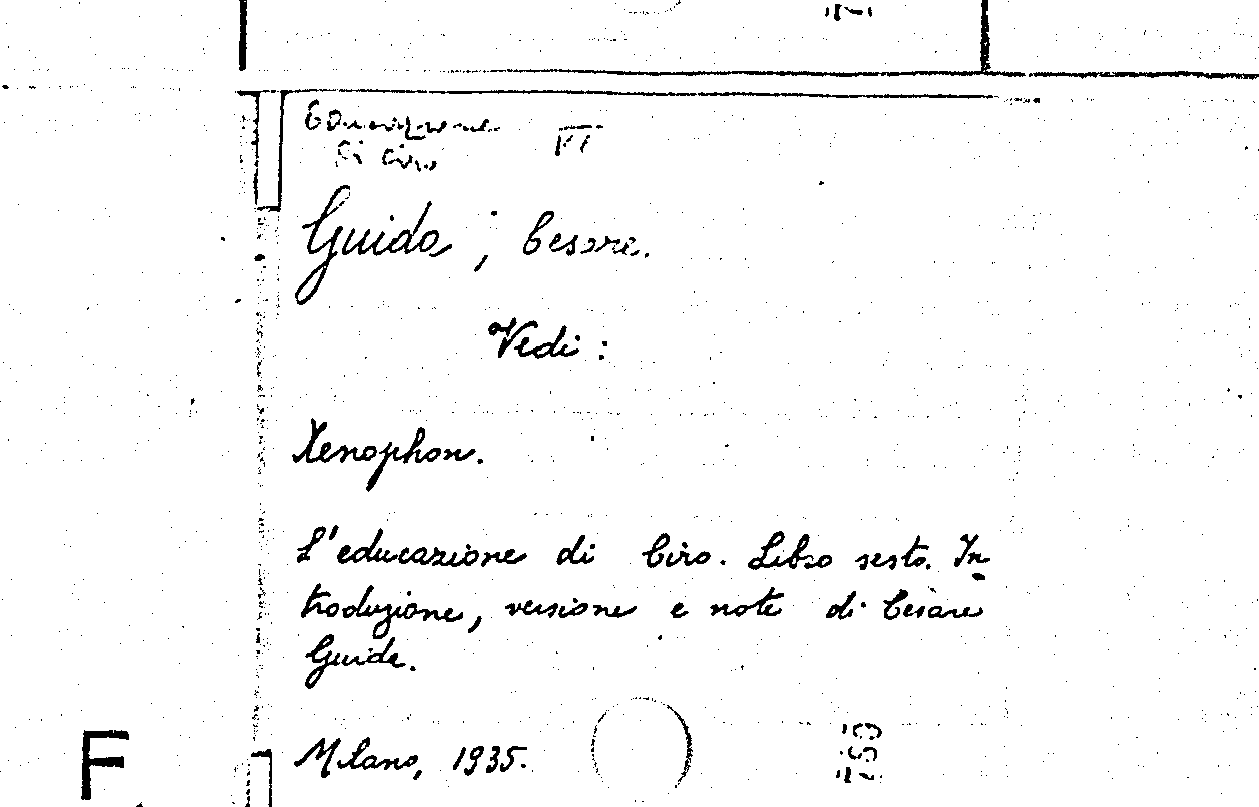 Educazione VI
di Ciro
Guida, Cesare.
Vedi:
Xenophon.
L'educazione di Ciro. Libro sesto. In
troduzione, versione e note di Cesare
Guida.
F
Milano, 1935.